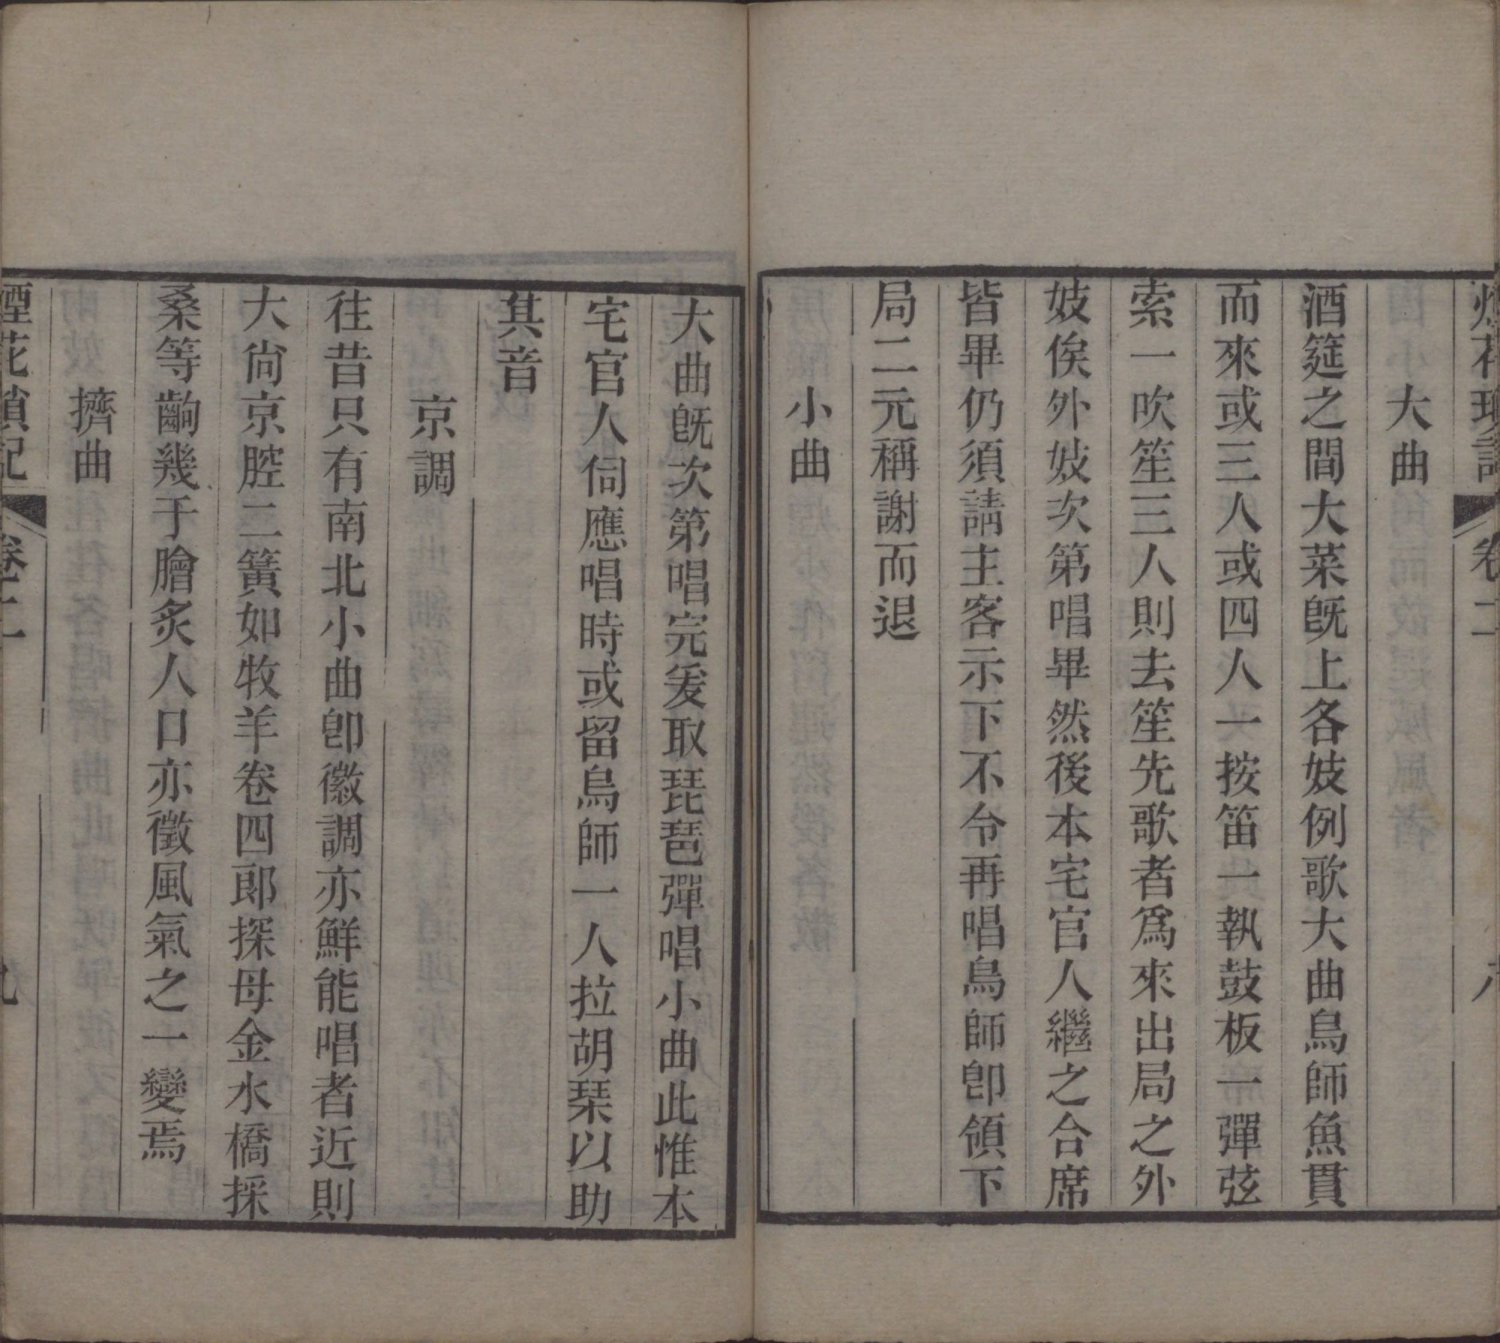 卷二
大曲
酒筵之間大菜旣上各妓例歌大曲烏師魚貫
而來或三人或四人一按笛一執鼓板一彈弦
索一吹笙三人則去笙先歌者爲來出局之外
妓俟外妓次第唱畢然後本宅官人繼之合席
皆畢仍須請主客示下不令再唱烏師卽領下
局二元稱謝而退
小曲
大曲旣次第唱完爰取琵琶彈唱小曲此惟本
宅官人伺應唱時或留烏師一人拉胡琹以助
其音
京調
往昔只有南北小曲卽徽調亦鮮能唱者近則
大尙京腔二簧如牧羊卷四郞探母金水橋採
桑等齣幾于膾炙人口亦徵風氣之一變焉
擠曲
煙花瑣記 卷二 九